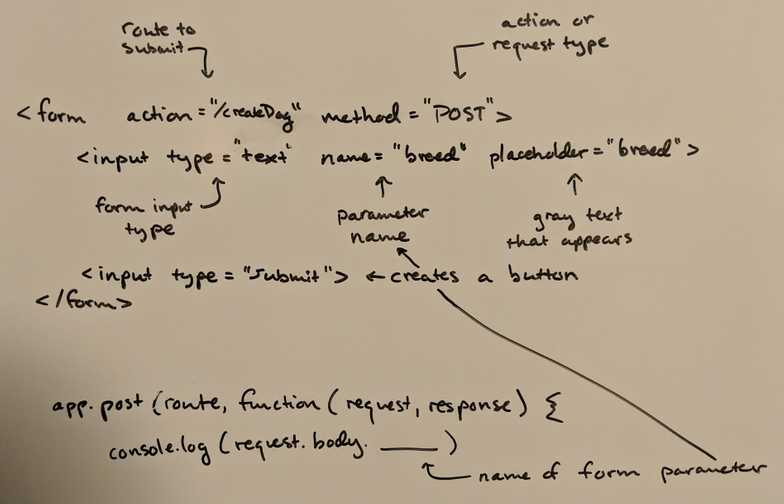 route to
submit
action or
request type
<form action="/createDog" method="POST">
<input type="text" name="breed" placeholder="breed">
form input
type
parameter
name
gray text
that appears
<input type="submit"> ← creates a button
</form>
app.post(route, function(request, response) {
console.log(request.body. ____)
name of form parameter